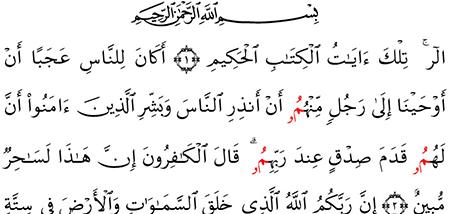 بِسْمِ اللَّهِ الرَّحْمَٰنِ الرَّحِيمِ
الٓر ۚ تِلْكَ ءَايَـٰتُ الْكِتَـٰبِ الْحَكِيمِ ﴿١﴾ أَكَانَ لِلنَّاسِ عَجَبًا أَنْ
أَوْحَيْنَا إِلَىٰ رَجُلٍ مِّنْهُمُۥ أَنْ أَنذِرِ النَّاسَ وَبَشِّرِ الَّذِينَ ءَامَنُوا۟ أَنَّ
لَهُمُۥ قَدَمَ صِدْقٍ عِندَ رَبِّهِمُۥ ۗ قَالَ الْكَـٰفِرُونَ إِنَّ هَـٰذَا لَسَـٰحِرٌ
مُّبِينٌ ﴿٢﴾ إِنَّ رَبَّكُمُ اللَّهُ الَّذِي خَلَقَ السَّمَـٰوَٰتِ وَالْأَرْضَ فِي سِتَّةِ